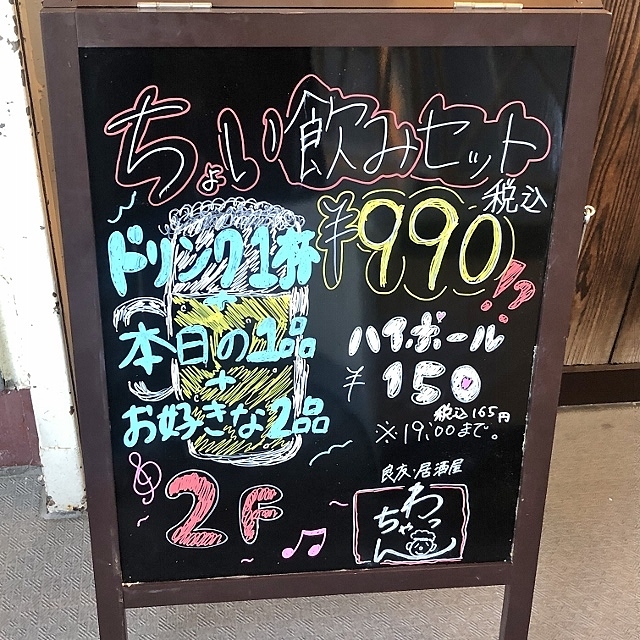 ちょい飲みセット
¥990 税込
!?
ドリンク1杯
+
本日の1品
+
お好きな2品
ハイボール
¥150
税込165円
※19:00まで。
2F
良友・居酒屋
わっ
ちゃ
ん